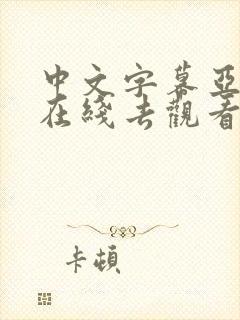 中文字幕亞
在綫去觀看
卡頓